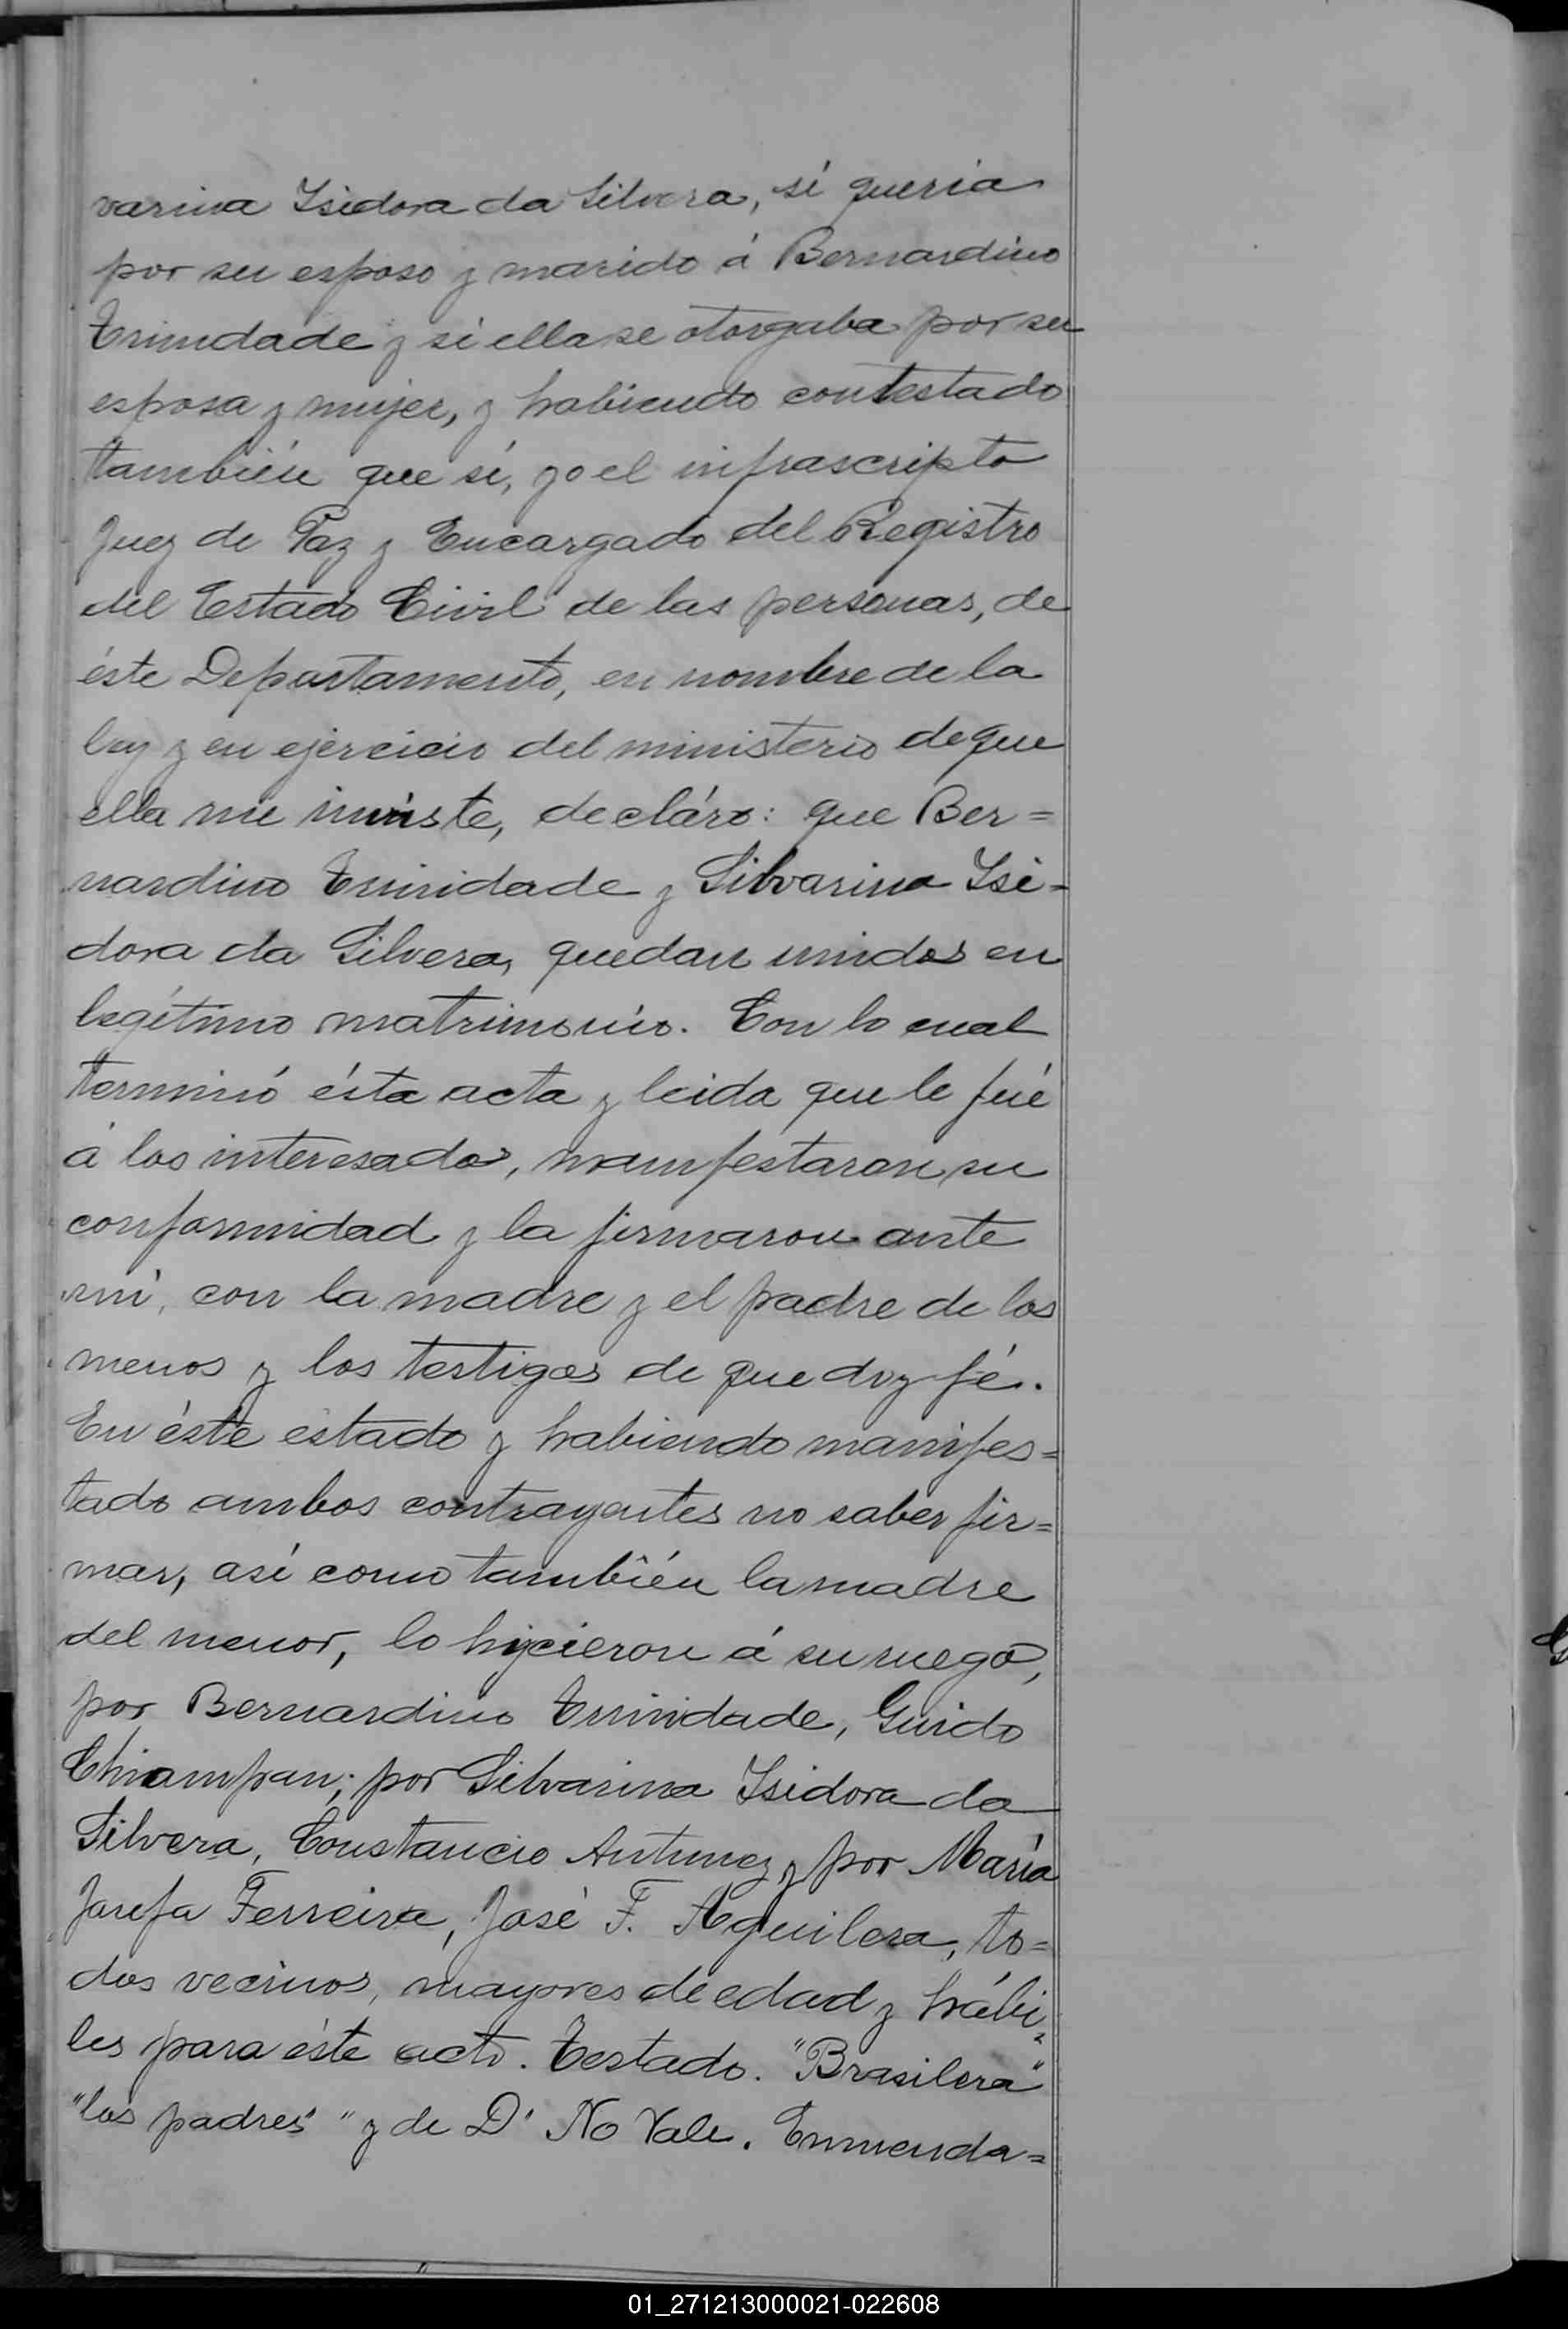 varina Isidora da Silvera, si queria
por su esposo y marido á Bernardino
Trinidade y si ella se otorgaba por su
esposa y mujer, y habiendo contestado
también que si, yo el infrascripto
Juez de Paz y Encargado del Registro
del Estado Civil de las personas, de
éste Departamento, en nombre de la
ley y en ejercicio del ministerio de que
ella me inviste, decláro: que Ber=
nardino Trinidade y Silvarina Isi=
dora da Silvera, quedan unidos en
legítimo matrimonio. Con lo cual
terminó ésta acta y leida que le fué
á los interesados, manifestaron su
conformidad y la firmaron ante
mi, con la madre y el padre de los
menos y los testigos de que doy fé.
En éste estado y habiendo manifes=
tado ambos contrayentes no saber fir=
mar, asi como también la madre
del menor, lo hicieron á su ruego,
por Bernardino Trinidade, Guido
Chiampan; por Silvarina Isidora da
Silvera, Constancio Antunez y por María
Josefa Ferreira, José F. Aguilera, to=
dos vecinos, mayores de edad y hábi=
les para éste acto. Testado. "Brasilera"
"los padres" y de D' No Vale. Enmenda=
01_271213000021-022608